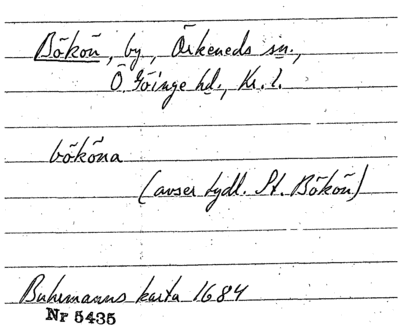 Bökön, by, Örkeneds sn.,
Ö. Göinge hd., Kr. l.
bököna
(avser tydl. St. Bökön)
Buhrmanns karta 1684
Nr 5435